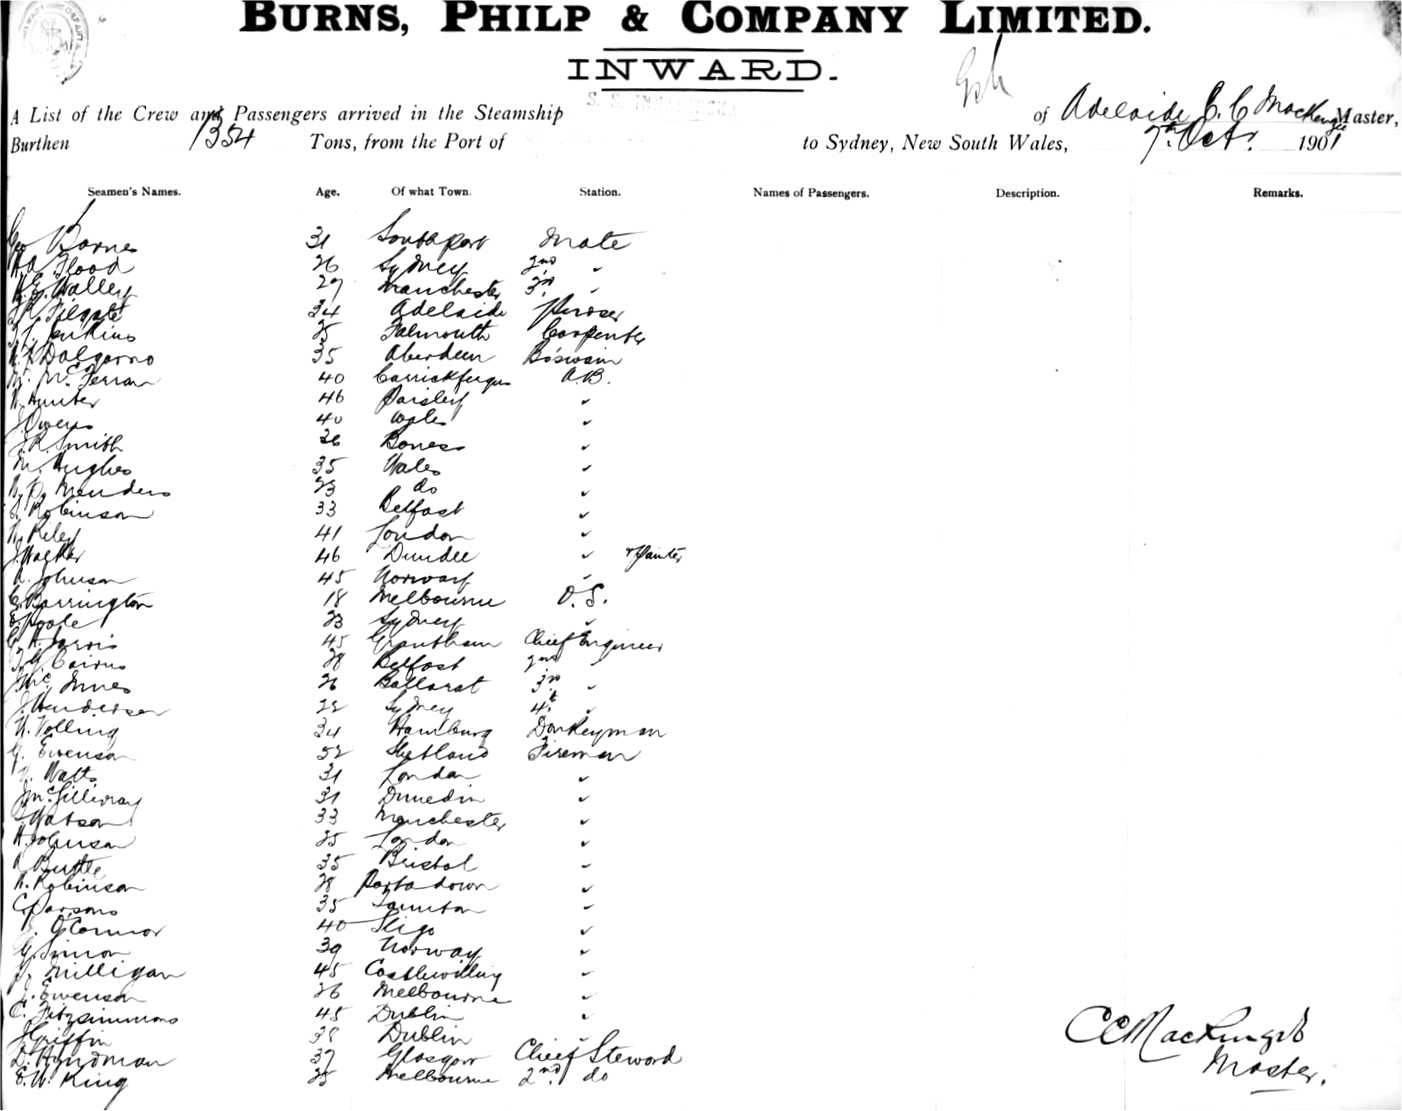 BURNS, PHILP & COMPANY LIMITED.
INWARD.
A List of the Crew and Passengers arrived in the Steamship of Adelaide C. C. Mackenzie Master,
Burthen 1354 Tons, from the Port of to Sydney, New South Wales, 7th Oct. 1901
Seamen's Names. Age. Of what Town. Station. Names of Passengers. Description. Remarks.
Geo Barnes 31 Southport Mate
Flood 26 Sydney 2nd "
Walley 27 Manchester 3rd "
Filgate 34 Adelaide Purser
Jenkins 25 Falmouth Carpenter
Dalgarno 35 Aberdeen Bo'swain
M. McFerran 40 Carrickfergus A.B.
Hunter 46 Paisley "
J. Owens 40 Wales "
J. R. Smith 26 Boness "
M. Hughes 35 Wales "
Menders 23 do "
Robinson 33 Belfast "
Riley 41 London "
J. Walker 46 Dundee " & Painter
Johnson 45 Norway "
C. Barrington 18 Melbourne O.S.
E. Poole 23 Sydney "
Jarvis 45 Grantham Chief Engineer
Cairns 28 Belfast 2nd "
McInnes 26 Ballarat 3rd "
J. Henderson 22 Sydney 4t "
Volling 34 Hamburg Donkeyman
G. Ewenson 52 Shetland Fireman
Watts 31 London "
J McGillivray 31 Dunedin "
Watson 33 Manchester "
Johnson 25 London "
Buttle 35 Bristol "
Robinson 28 Portadown "
C. Parsons 35 Taunton "
O'Connor 40 Sligo "
G. Simon 39 Norway "
J. Milligan 45 Castlewilling "
J. Ewenson 26 Melbourne "
C. Fitzsimmons 45 Dublin "
J Griffin 38 Dublin "
D. Hyndman 37 Glasgow Chief Steward
E. W. King 25 Melbourne 2nd do
C C Mackenzie
Master.